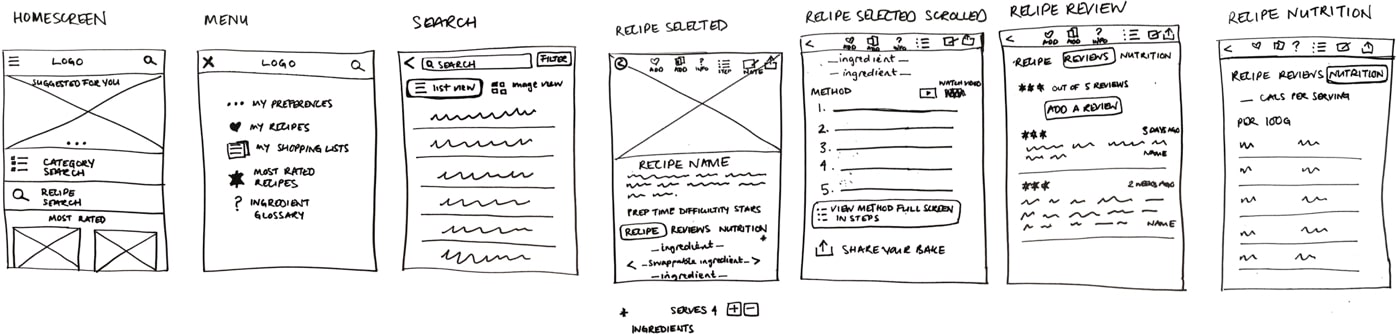 HOMESCREEN
LOGO
SUGGESTED FOR YOU
CATEGORY
SEARCH
RECIPE
SEARCH
MOST RATED
MENU
X LOGO
MY PREFERENCES
MY RECIPES
MY SHOPPING LISTS
MOST RATED
RECIPES
? INGREDIENT
GLOSSARY
SEARCH
< SEARCH FILTER
LIST VIEW image view
RECIPE SELECTED
<
ADD ADD INFO STEP NOTE
RECIPE NAME
PREP TIME DIFFICULTITY STARS
RECIPE REVIEWS NUTRITION
*
ingredient
< Swappable ingredient >
ingredient
* SERVES 4 + -
INGREDIENTS
RECIPE SELECTED SCROLLED
< ?
ADD ADD INFO
ingredient
ingredient
WATCH VIDEO
METHOD
1.
2.
3.
4
5.
VIEW METHOD FULL SCREEN
IN STEPS
SHARE YOUR BAKE
RECIPE REVIEW
< ?
ADD ADD INFO
RECIPE REVIEWS NUTRITION
*** OUT OF 5 REVIEWS
ADD A REVIEW
*** 3 DAYS AGO
NAME
*** 2 WEEKS AGO
NAME
RECIPE NUTRITION
< ?
RECIPE REVIEWS NUTRITION
_ CALS PER SERVING
PER 100G